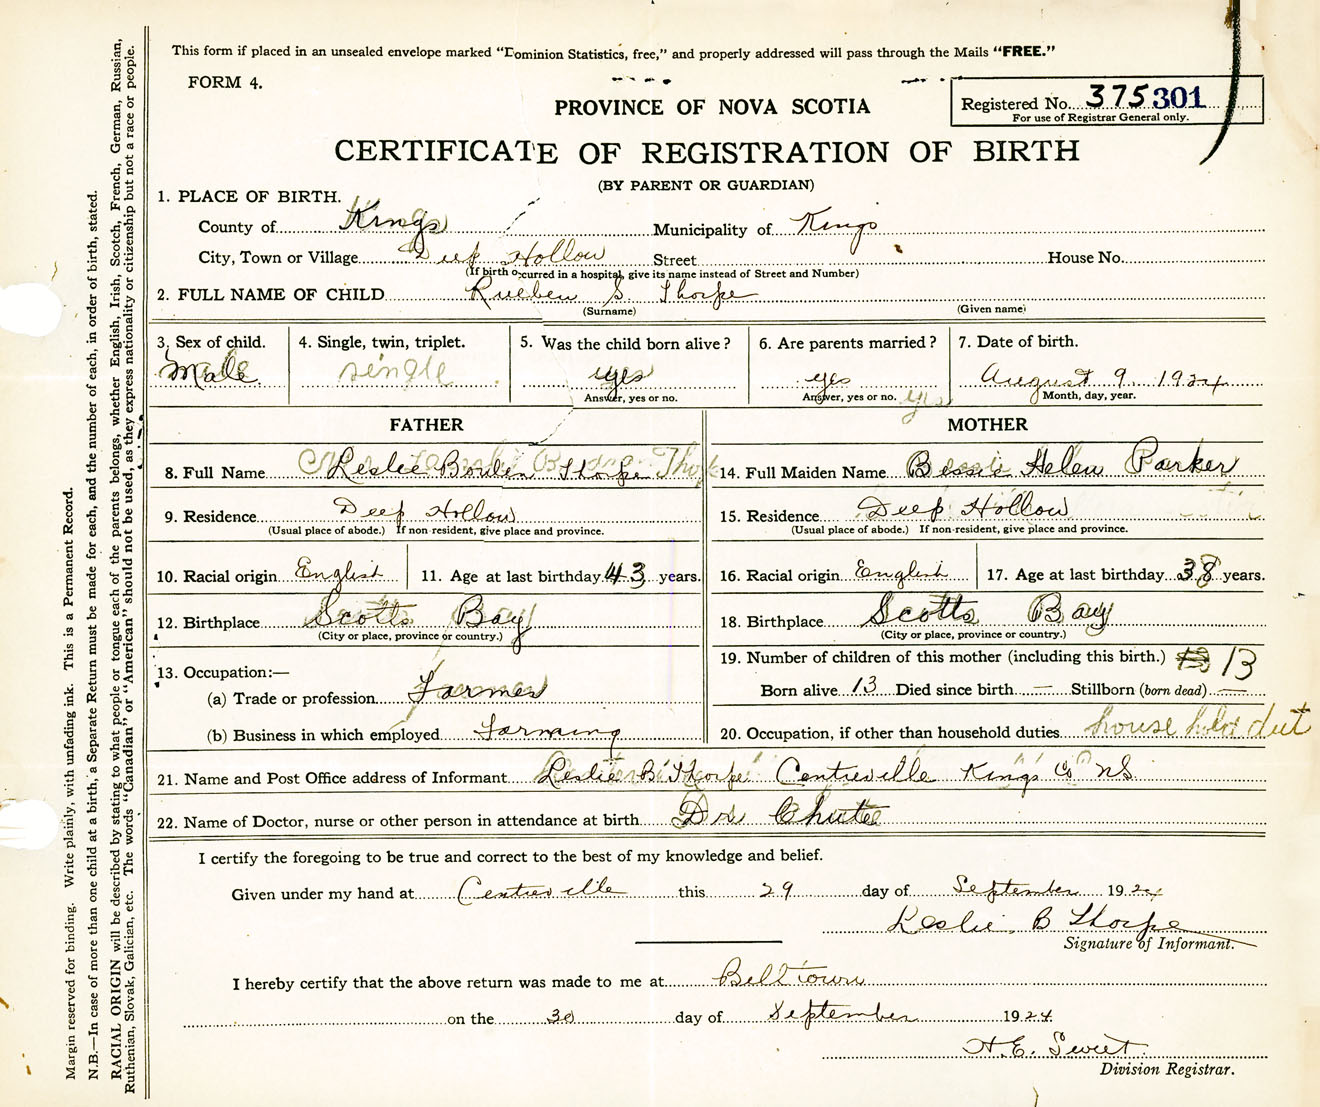 This form if placed in an unsealed envelope marked "Dominion Statistics, free," and properly addressed will pass through the Mails "FREE."
FORM 4.
PROVINCE OF NOVA SCOTIA
Registered No. 375301
For use of Registrar General only.
CERTIFICATE OF REGISTRATION OF BIRTH
(BY PARENT OR GUARDIAN)
1. PLACE OF BIRTH.
County of Kings Municipality of Kings
City, Town or Village Deep Hollow Street House No.
(If birth occurred in a hospital, give its name instead of Street and Number)
2. FULL NAME OF CHILD Rueben S. Thorpe
(Surname) (Given name)
3. Sex of child. 4. Single, twin, triplet. 5. Was the child born alive? 6. Are parents married? 7. Date of birth.
Male single yes yes August 9 1924
Answer, yes or no. Answer, yes or no. yes Month, day, year.
FATHER MOTHER
8. Full Name Leslie Thorpe 14. Full Maiden Name Bessie Helen Parker
9. Residence Deep Hollow 15. Residence Deep Hollow
(Usual place of abode.) If non-resident, give place and province. (Usual place of abode.) If non-resident, give place and province.
10. Racial origin English 11. Age at last birthday 43 years. 16. Racial origin English 17. Age at last birthday 38 years.
12. Birthplace Scotts Bay 18. Birthplace Scotts Bay
(City or place, province or country.) (City or place, province or country.)
13. Occupation:— 19. Number of children of this mother (including this birth.) 13
(a) Trade or profession Farmer Born alive 13 Died since birth — Stillborn (born dead) —
(b) Business in which employed Farming 20. Occupation, if other than household duties house hold dut
21. Name and Post Office address of Informant Leslie B Thorpe Centreville Kings Co NS
22. Name of Doctor, nurse or other person in attendance at birth Dr Chute
I certify the foregoing to be true and correct to the best of my knowledge and belief.
Given under my hand at Centreville this 29 day of September 1924
Leslie B Thorpe
Signature of Informant.
I hereby certify that the above return was made to me at Belltown
on the 30 day of September 1924
H. E. Sweet
Division Registrar.
Margin reserved for binding. Write plainly, with unfading ink. This is a Permanent Record.
N.B.—In case of more than one child at a birth, a Separate Return must be made for each, and the number of each, in order of birth, stated.
RACIAL ORIGIN will be described by stating to what people or tongue each of the parents belongs, whether English, Irish, Scotch, French, German, Russian,
Ruthenian, Slovak, Galician, etc. The words "Canadian" or "American" should not be used, as they express nationality or citizenship but not a race or people.